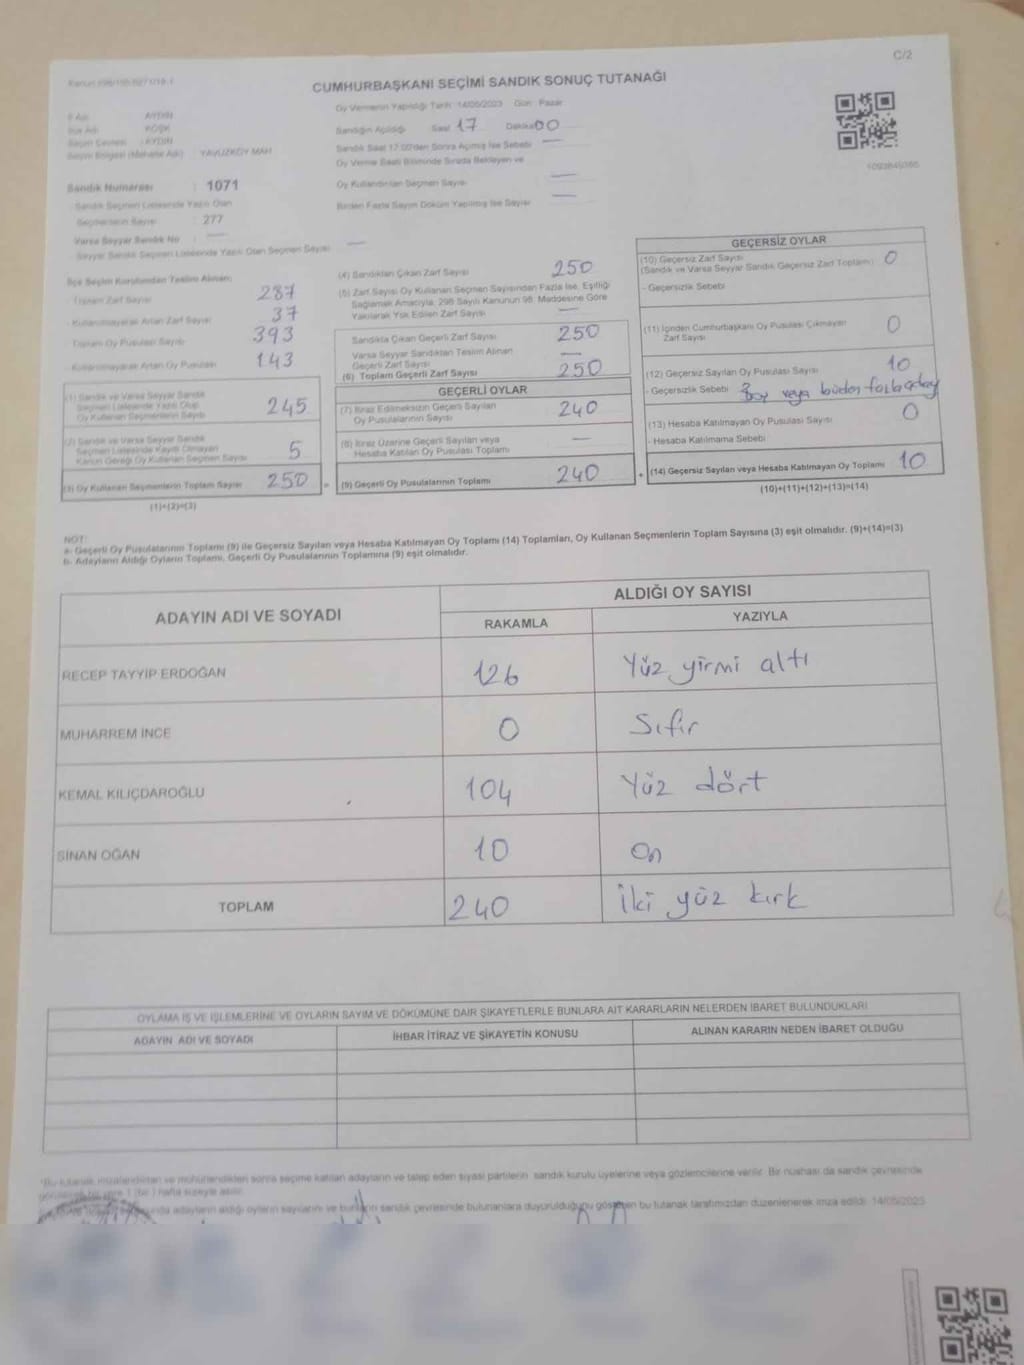 C/2
CUMHURBAŞKANI SEÇİMİ SANDIK SONUÇ TUTANAĞI
Oy Vermenin Yapıldığı Tarih 14/05/2023 Gün Pazar
İl Adı AYDIN
İlçe Adı KÖŞK
Seçim Çevresi AYDIN
Seçim Bölgesi (Mahalle Adı) YAVUZKÖY MAH
Sandığın Açıldığı Saat 17 Dakika 00
Sandık Saat 17:00'den Sonra Açılmış İse Sebebi —
Oy Verme Saati Bitiminde Sırada Bekleyen ve
Oy Kullandırılan Seçmen Sayısı —
Birden Fazla Sayım Döküm Yapılmış İse Sayısı —
Sandık Numarası : 1071
Sandık Seçmen Listesinde Yazılı Olan
Seçmenlerin Sayısı : 277
Varsa Seyyar Sandık No —
Seyyar Sandık Seçmen Listesinde Yazılı Olan Seçmen Sayısı —
İlçe Seçim Kurulundan Teslim Alınan:
Toplam Zarf Sayısı 287
- Kullanılmayarak Artan Zarf Sayısı 37
Toplam Oy Pusulası Sayısı 393
- Kullanılmayarak Artan Oy Pusulası 143
(1) Sandık ve Varsa Seyyar Sandık
Seçmen Listesinde Yazılı Olup
Oy Kullanan Seçmenlerin Sayısı 245
(2) Sandık ve Varsa Seyyar Sandık
Seçmen Listesinde Kayıtlı Olmayan
Kanun Gereği Oy Kullanan Seçmen Sayısı 5
(3) Oy Kullanan Seçmenlerin Toplam Sayısı 250
(1)+(2)=(3)
(4) Sandıktan Çıkan Zarf Sayısı 250
(5) Zarf Sayısı Oy Kullanan Seçmen Sayısından Fazla İse, Eşitliği
Sağlamak Amacıyla, 298 Sayılı Kanunun 98. Maddesine Göre
Yakılarak Yok Edilen Zarf Sayısı —
Sandıkta Çıkan Geçerli Zarf Sayısı 250
Varsa Seyyar Sandıktan Teslim Alınan
Geçerli Zarf Sayısı —
(6) Toplam Geçerli Zarf Sayısı 250
GEÇERLİ OYLAR
(7) İtiraz Edilmeksizin Geçerli Sayılan
Oy Pusulalarının Sayısı 240
(8) İtiraz Üzerine Geçerli Sayılan veya
Hesaba Katılan Oy Pusulası Toplamı —
= (9) Geçerli Oy Pusulalarının Toplamı 240
GEÇERSİZ OYLAR
(10) Geçersiz Zarf Sayısı 0
(Sandık ve Varsa Seyyar Sandık Geçersiz Zarf Toplamı)
- Geçersizlik Sebebi
(11) İçinden Cumhurbaşkanı Oy Pusulası Çıkmayan
Zarf Sayısı 0
(12) Geçersiz Sayılan Oy Pusulası Sayısı 10
- Geçersizlik Sebebi veya
(13) Hesaba Katılmayan Oy Pusulası Sayısı 0
- Hesaba Katılmama Sebebi
+ (14) Geçersiz Sayılan veya Hesaba Katılmayan Oy Toplamı 10
(10)+(11)+(12)+(13)=(14)
NOT:
a- Geçerli Oy Pusulalarının Toplamı (9) ile Geçersiz Sayılan veya Hesaba Katılmayan Oy Toplamı (14) Toplamları, Oy Kullanan Seçmenlerin Toplam Sayısına (3) eşit olmalıdır. (9)+(14)=(3)
b- Adayların Aldığı Oyların Toplamı, Geçerli Oy Pusulalarının Toplamına (9) eşit olmalıdır.
ADAYIN ADI VE SOYADI
ALDIĞI OY SAYISI
RAKAMLA YAZIYLA
RECEP TAYYİP ERDOĞAN 126 Yüz yirmi altı
MUHARREM İNCE 0 Sıfır
KEMAL KILIÇDAROĞLU 104 Yüz dört
SİNAN OĞAN 10 On
TOPLAM 240 İki yüz kırk
OYLAMA İŞ VE İŞLEMLERİNE VE OYLARIN SAYIM VE DÖKÜMÜNE DAİR ŞİKAYETLERLE BUNLARA AİT KARARLARIN NELERDEN İBARET BULUNDUKLARI
ADAYIN ADI VE SOYADI İHBAR İTİRAZ VE ŞİKAYETİN KONUSU ALINAN KARARIN NEDEN İBARET OLDUĞU
*Bu tutanak imzalandıktan ve mühürlendikten sonra seçime katılan adayların ve talep eden siyasi partilerin sandık kurulu üyelerine veya gözlemcilerine verilir. Bir nüshası da sandık çevresinde
1 (bir) hafta süreyle asılır.
adayların aldığı oyların sayılarını ve bunların sandık çevresinde bulunanlara duyurulduğunu gösteren bu tutanak tarafımızdan düzenlenerek imza edildi. 14/05/2023